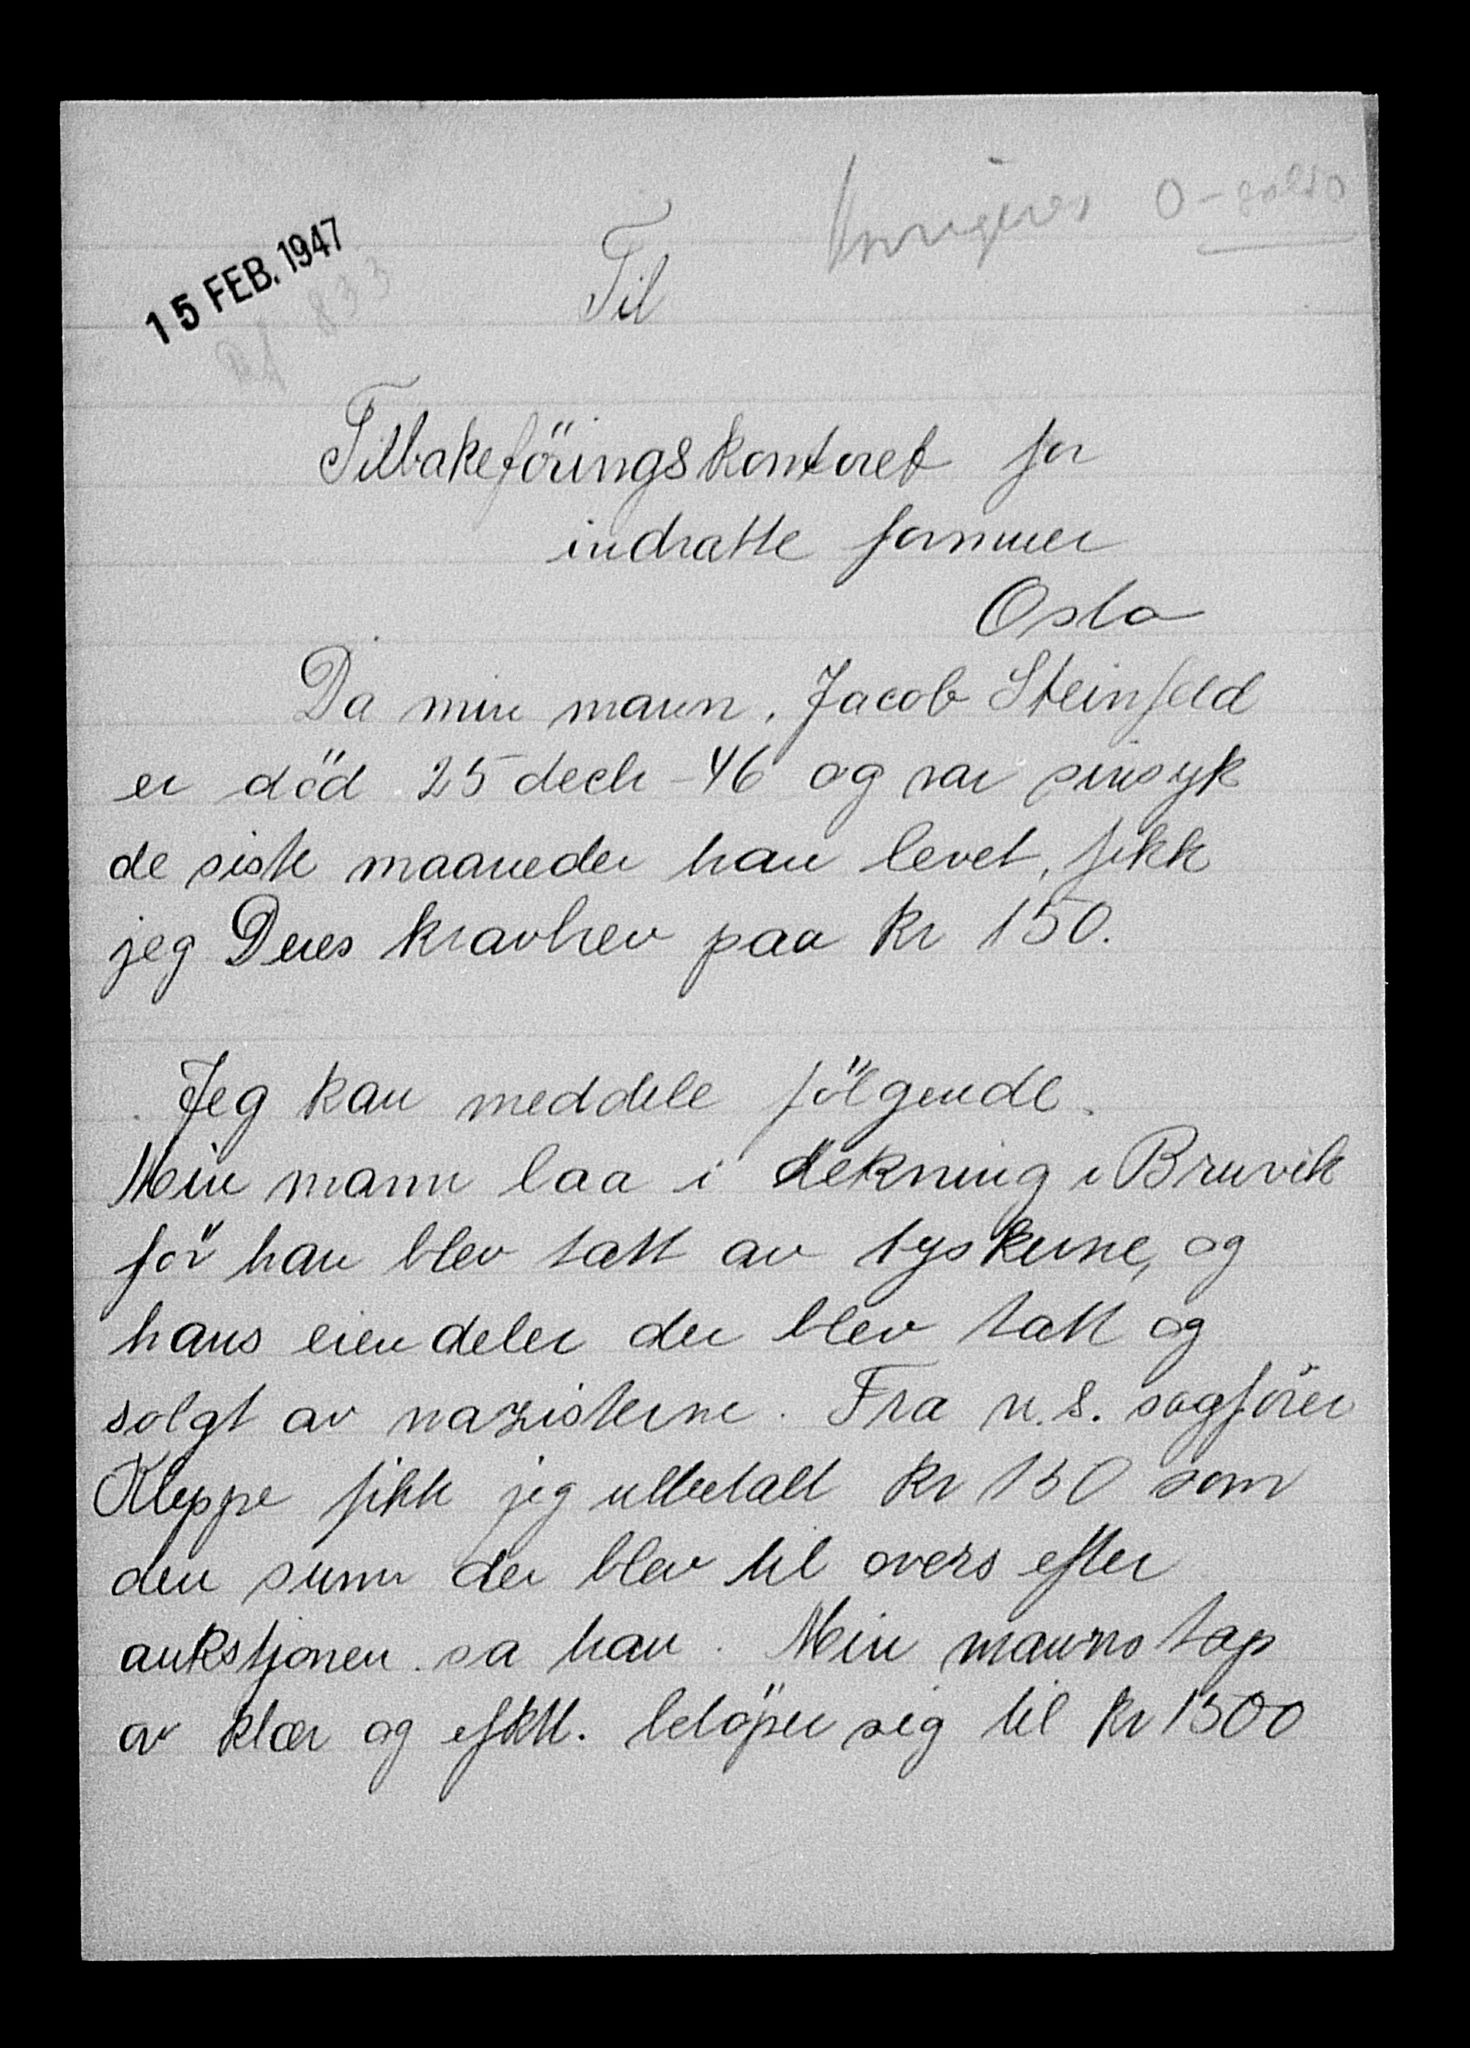 15 FEB. 1947
O-saldo
Til
Tilbakeföringskontoret for
indratte formuer
Oslo
Da min mann, Jacob Steinfeld
er död 25 decb -46 og var sinsyk
de siste maaneder han levet, fikk
jeg Deres kravbrev paa kr 150.
Jeg kan meddele fölgende.
Min mann laa i dekning i Bruvik
för han blev tatt av tyskerne, og
hans eiendeler der blev tatt og
solgt av nazisterne. Fra n.s. sagförer
Kleppe fikk jeg utbetalt kr 150 som
den sum der blev til overs efter
aukstjonen sa han. Min manns tap
av klær og efkt. belöper sig til kr 1500